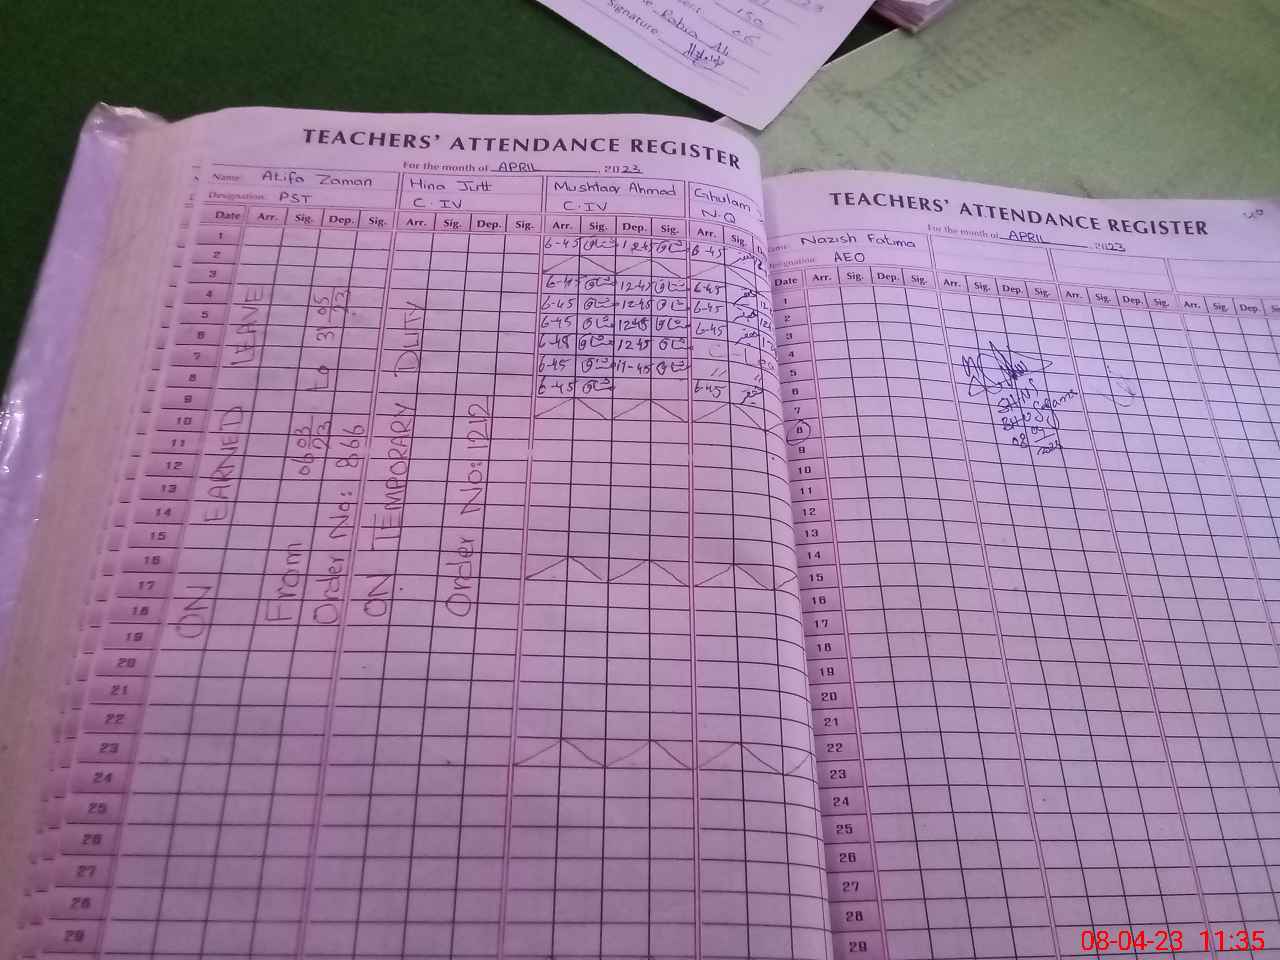 150
06
Rabia Ali
Signature
TEACHERS' ATTENDANCE REGISTER
For the month of APRIL, 2023
Name: Atifa Zaman
Hina Jutt
Mushtaq Ahmad
Ghulam
Designation: PST
C.IV
C.IV
N.Q
Date Arr. Sig. Dep. Sig. Arr. Sig. Dep. Sig. Arr. Sig. Dep. Sig. Arr. Sig.
1 6-45 1245 6-45
2
3 6-45 1245 6-45
4 6-45 1245 6-45
5 6-45 1245 6-45
6 6-45 1245 C-L
7 6-45 11-45 " "
8 6-45 6-45
9
10
11
12
13
14
15
16
17
18
19
20
21
22
23
24
25
26
27
28
29
ON EARNED LEAVE
From 06 03 23 to 31 05 23
Order No: 866
ON TEMPORARY DUITY
Order No: 1212
TEACHERS' ATTENDANCE REGISTER
For the month of APRIL 2023
Name: Nazish Fatima
Designation: AEO
Date Arr. Sig. Dep. Sig. Arr. Sig. Dep. Sig. Arr. Sig. Dep. Sig. Arr. Sig. Dep. Sig.
1
2
3
4
5
6
7
8
9
10
11
12
13
14
15
16
17
18
19
20
21
22
23
24
25
26
27
28
29
08-04-23 11:35